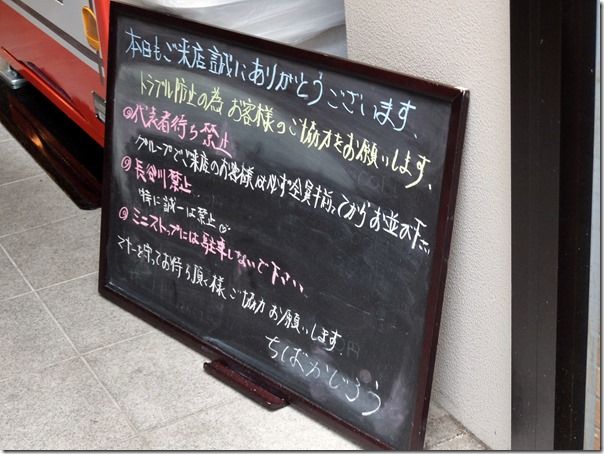 本日もご来店誠にありがとうございます、
トラブル防止の為お客様のご協力をお願いします、
代表者待ち禁止
グループでご来店のお客様は必ず全員揃ってからお並び下さい
長谷川禁止
特に誠一は禁止
ミニストップには駐車しないで下さい、
マナーを守ってお待ち頂く様ご協力お願いします、
ちばからじろう